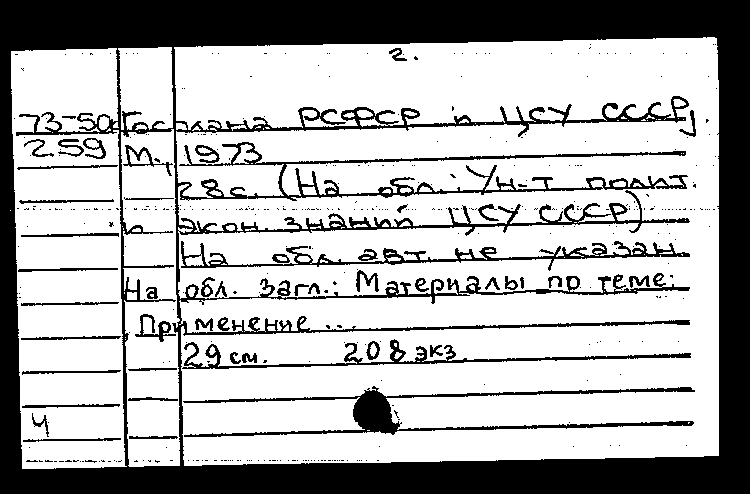 2.
73-50к Госплана РСФСР и ЦСУ СССР].
2.59 М., 1973
28с. (На обл.: Ун-т полит.
и экон. знаний ЦСУ СССР)
На обл. авт. не указан.
На обл. загл.: Материалы по теме:
Применение ...
29 см. 208 экз.
4